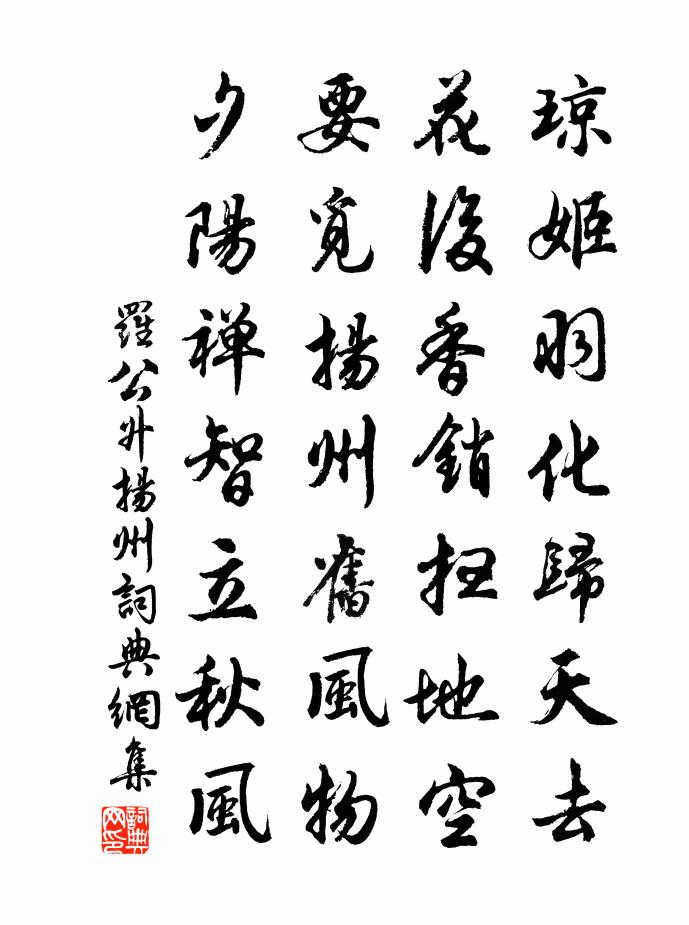 琼姬羽化歸天去
花後香銷扫地空
要覓揚州舊風物
夕陽禅智立秋風
羅公升揚州詞典網集
詞典网印